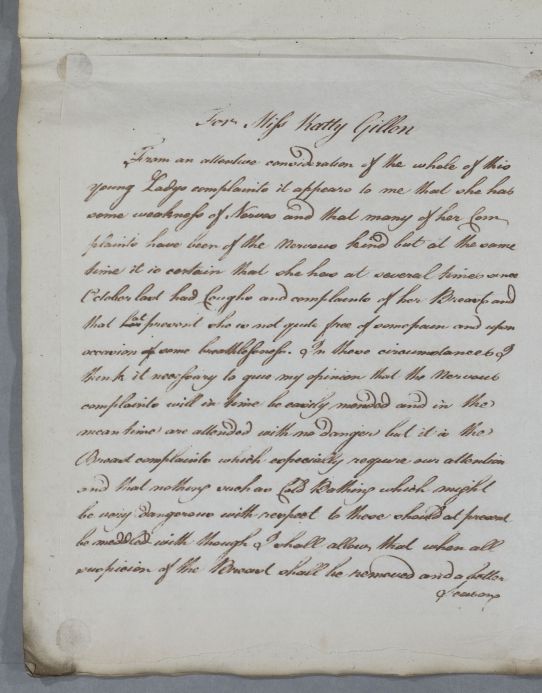 For Miss Katty Gillon
From an attentive consideration of the whole of this
young Ladys complaints it appears to me that she has
some weakness of Nerves and that many of her Com
plaints have been of the nervous kind but at the same
time it is certain that she has at several times since
October last had Coughs and complaints of her Breast and
that at present she is not quite free of some pain and upon
occasion of some breathlessness. In these circumstances I
think it necessary to give my opinion that the nervous
complaints will in time be easily mended and in the
mean time are attended with no danger but it is the
Breast complaints which especially require our attention
and that nothing such as Cold Bathing which might
be very dangerous with respect to these should at present
be meddled with though I shall allow that when all
suspicion of the Breast shall be removed and a better
Season